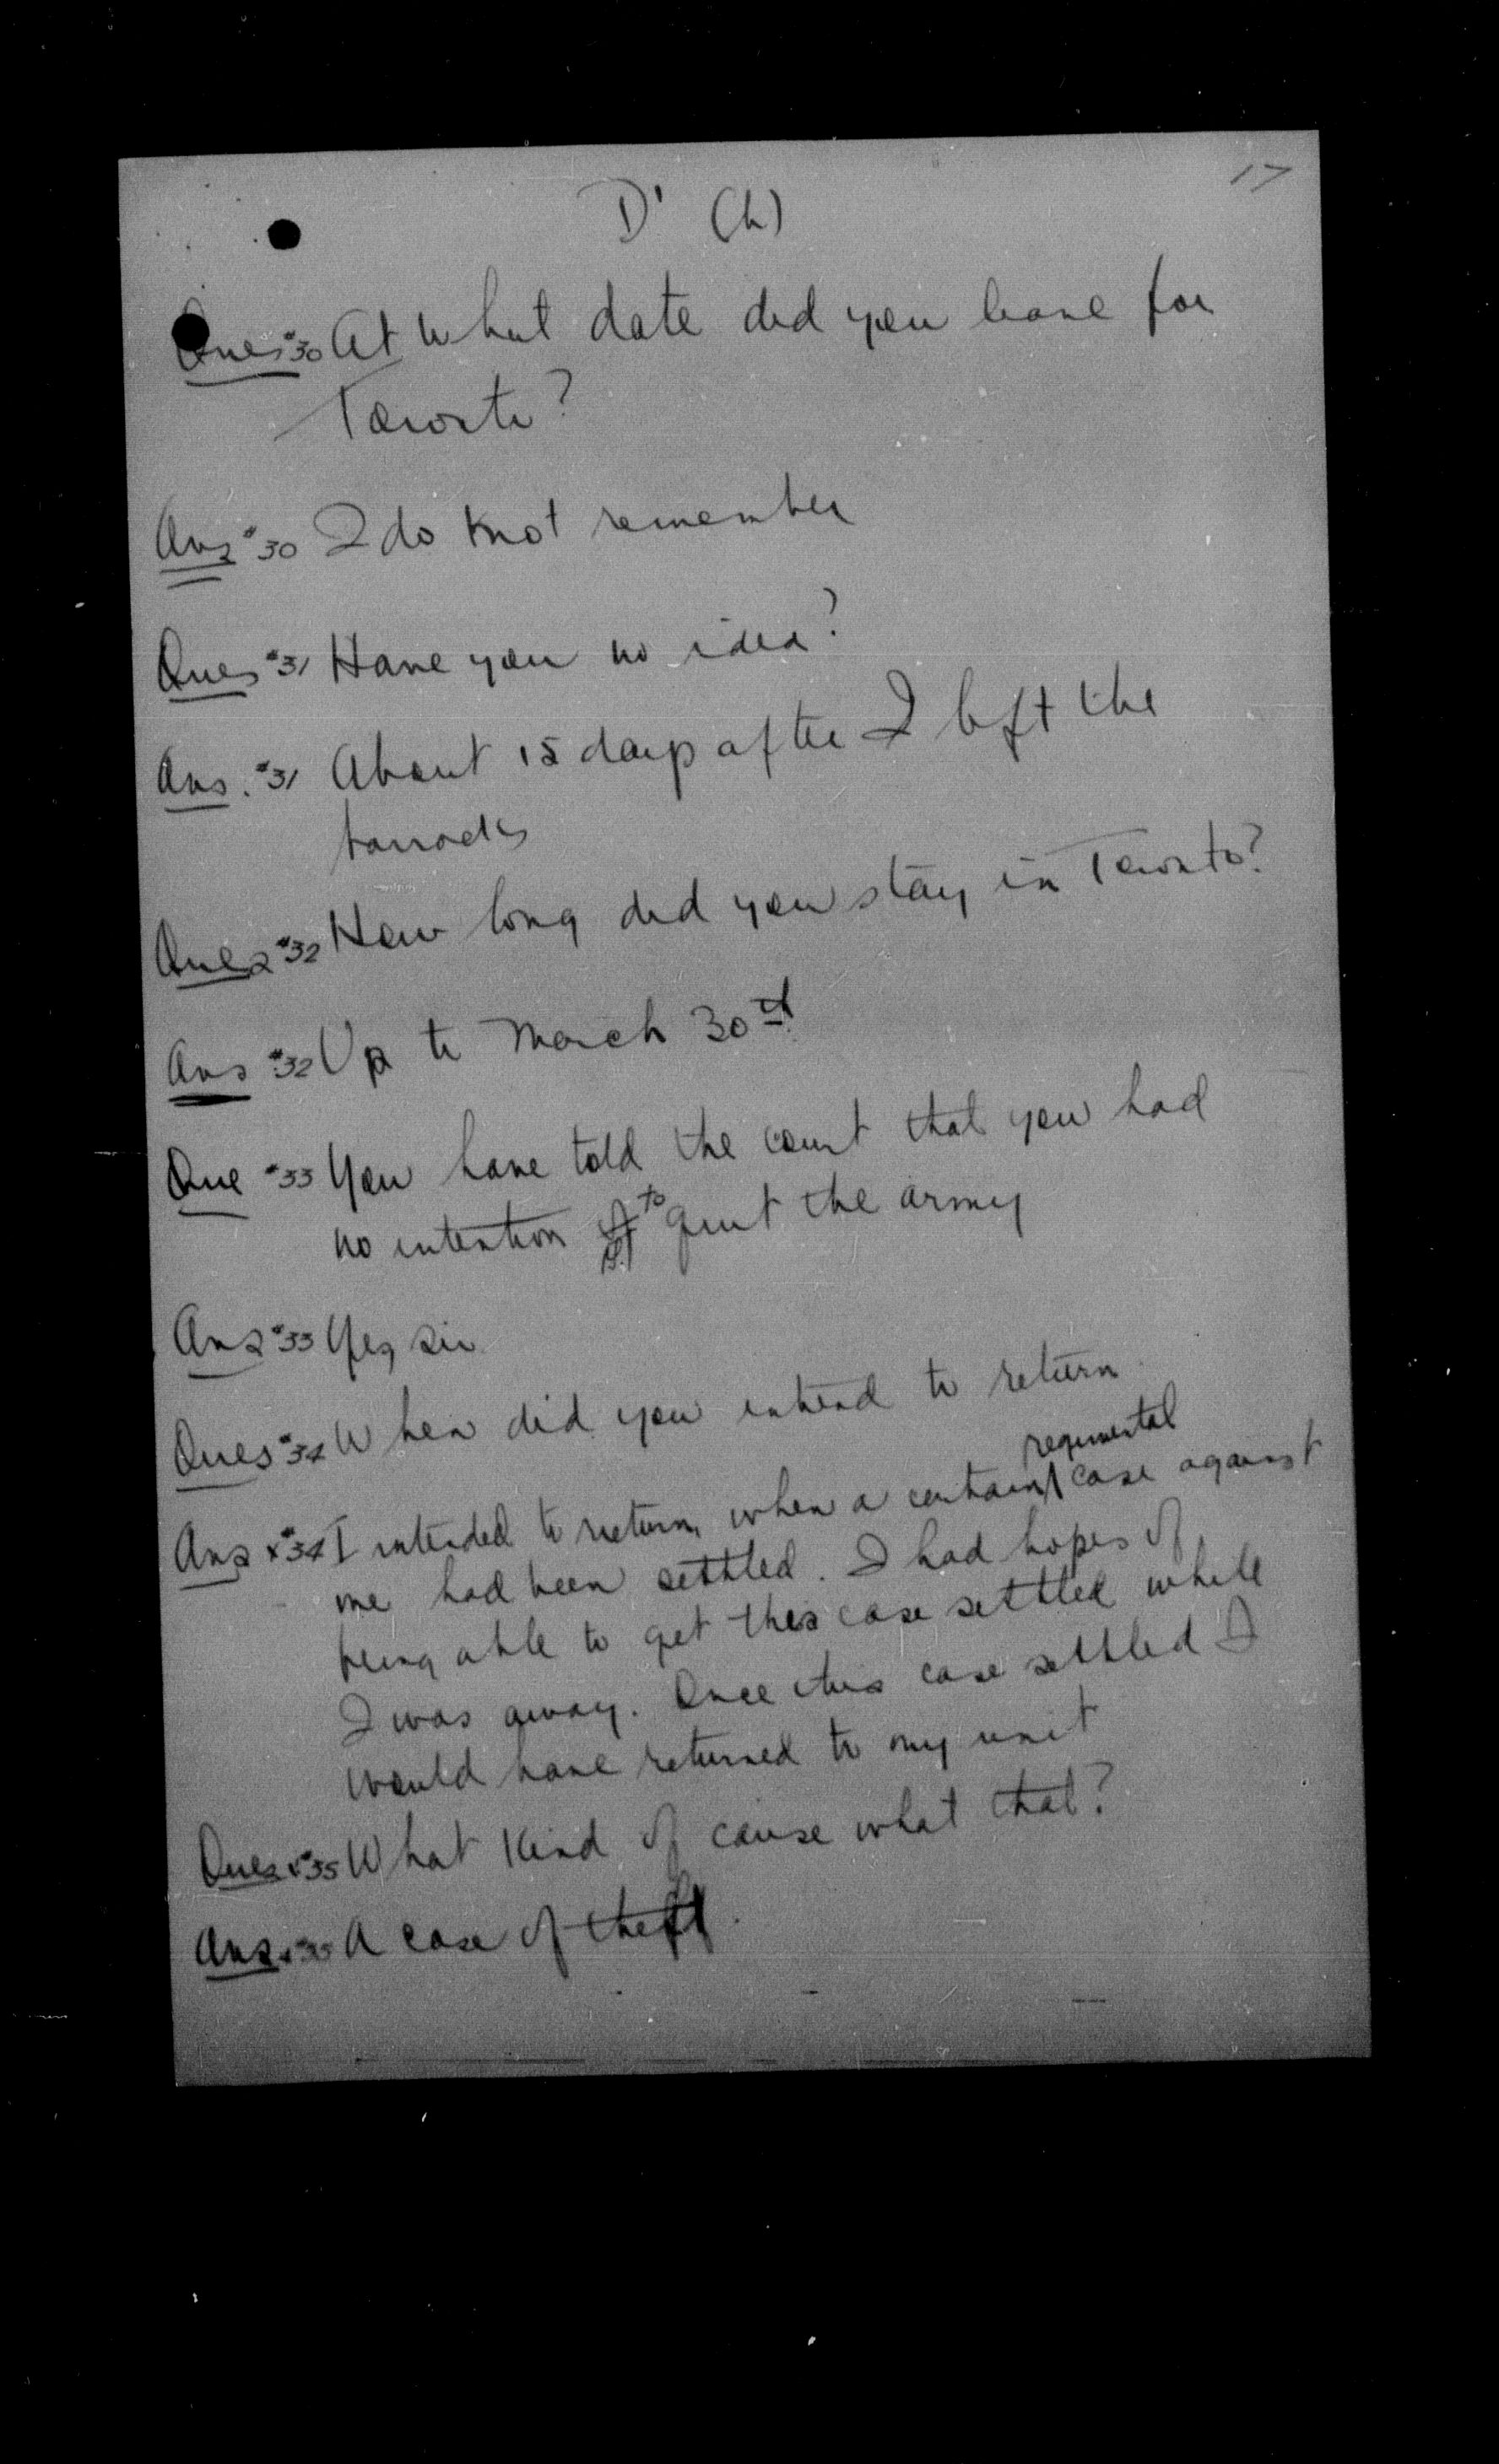 17
D' (h)
Ques #30 At what date did you leave for
Toronto?
Ans #30 I do knot remember
Ques #31 Have you no idea?
Ans. #31 About 15 days after I left the
barracks
Ques #32 How long did you stay in Toronto?
Ans #32 Up to March 30th
Que #33 You have told the court that you had
no intention to quit the army
Ans #33 Yes, sir
Ques #34 When did you intend to return
regimental
Ans #34 I intended to return, when a certain case against
me had been settled. I had hopes of
being able to get this case settled while
I was away. Once this case settled I
would have returned to my unit
Ques #35 What Kind of cause what that?
Ans #35 A case of theft.